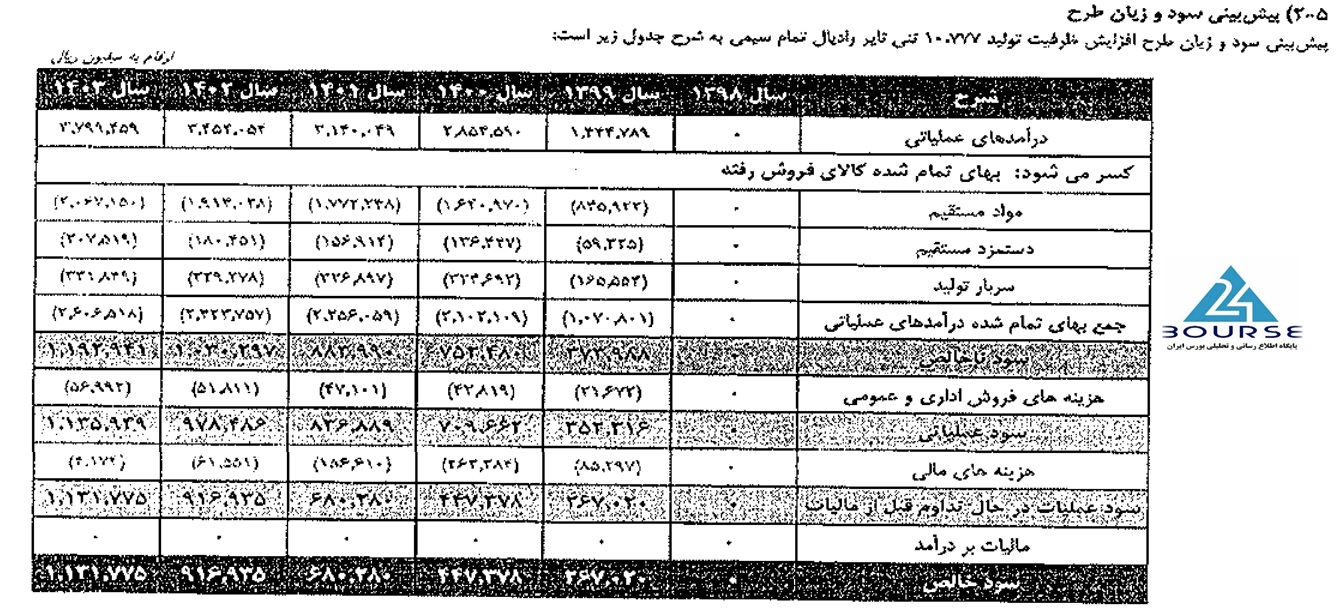 ۲-۵) پیش‌بینی سود و زیان طرح
پیش‌بینی سود و زیان طرح افزایش ظرفیت تولید ۱۰.۷۷۷ تنی تایر رادیال تمام سیمی به شرح جدول زیر است:
ارقام به میلیون ریال
شرح سال ۱۳۹۸ سال ۱۳۹۹ سال ۱۴۰۰ سال ۱۴۰۱ سال ۱۴۰۲ سال ۱۴۰۳
درآمدهای عملیاتی ۰ ۱,۴۴۴,۷۸۹ ۲,۸۵۴,۵۹۰ ۳,۱۴۰,۰۴۹ ۳,۴۵۴,۰۵۴ ۳,۷۹۹,۴۵۹
کسر می شود: بهای تمام شده کالای فروش رفته
مواد مستقیم ۰ (۸۴۵,۹۲۳) (۱,۶۴۰,۹۷۰) (۱,۷۷۲,۲۴۸) (۱,۹۱۴,۰۲۸) (۲,۰۶۷,۱۵۰)
دستمزد مستقیم ۰ (۵۹,۳۲۵) (۱۳۶,۴۴۷) (۱۵۶,۹۱۴) (۱۸۰,۴۵۱) (۲۰۷,۵۱۹)
سربار تولید ۰ (۱۶۵,۵۵۳) (۳۲۴,۶۹۲) (۳۲۶,۸۹۷) (۳۲۹,۲۷۸) (۳۳۱,۸۴۹)
جمع بهای تمام شده درآمدهای عملیاتی ۰ (۱,۰۷۰,۸۰۱) (۲,۱۰۲,۱۰۹) (۲,۲۵۶,۰۵۹) (۲,۴۲۳,۷۵۷) (۲,۶۰۶,۵۱۸)
سود ناخالص ۰ ۳۷۳,۹۸۸ ۷۵۲,۴۸۰ ۸۸۳,۹۹۰ ۱,۰۳۰,۲۹۷ ۱,۱۹۲,۹۴۱
هزینه های فروش اداری و عمومی ۰ (۲۱,۶۷۲) (۴۲,۸۱۹) (۴۷,۱۰۱) (۵۱,۸۱۱) (۵۶,۹۹۲)
سود عملیاتی ۰ ۳۵۲,۳۱۶ ۷۰۹,۶۶۲ ۸۳۶,۸۸۹ ۹۷۸,۴۸۶ ۱,۱۳۵,۹۴۹
هزینه های مالی ۰ (۸۵,۲۹۷) (۲۶۲,۲۸۴) (۱۵۶,۶۱۰) (۶۱,۵۵۱) (۴,۱۷۴)
سود عملیات در حال تداوم قبل از مالیات ۰ ۲۶۷,۰۲۰ ۴۴۷,۳۷۸ ۶۸۰,۲۸۰ ۹۱۶,۹۳۵ ۱,۱۳۱,۷۷۵
مالیات بر درآمد ۰ ۰ ۰ ۰ ۰ ۰
سود خالص ۰ ۲۶۷,۰۲۰ ۴۴۷,۳۷۸ ۶۸۰,۲۸۰ ۹۱۶,۹۳۵ ۱,۱۳۱,۷۷۵
24
BOURSE
پایگاه اطلاع رسانی و تحلیلی بورس ایران